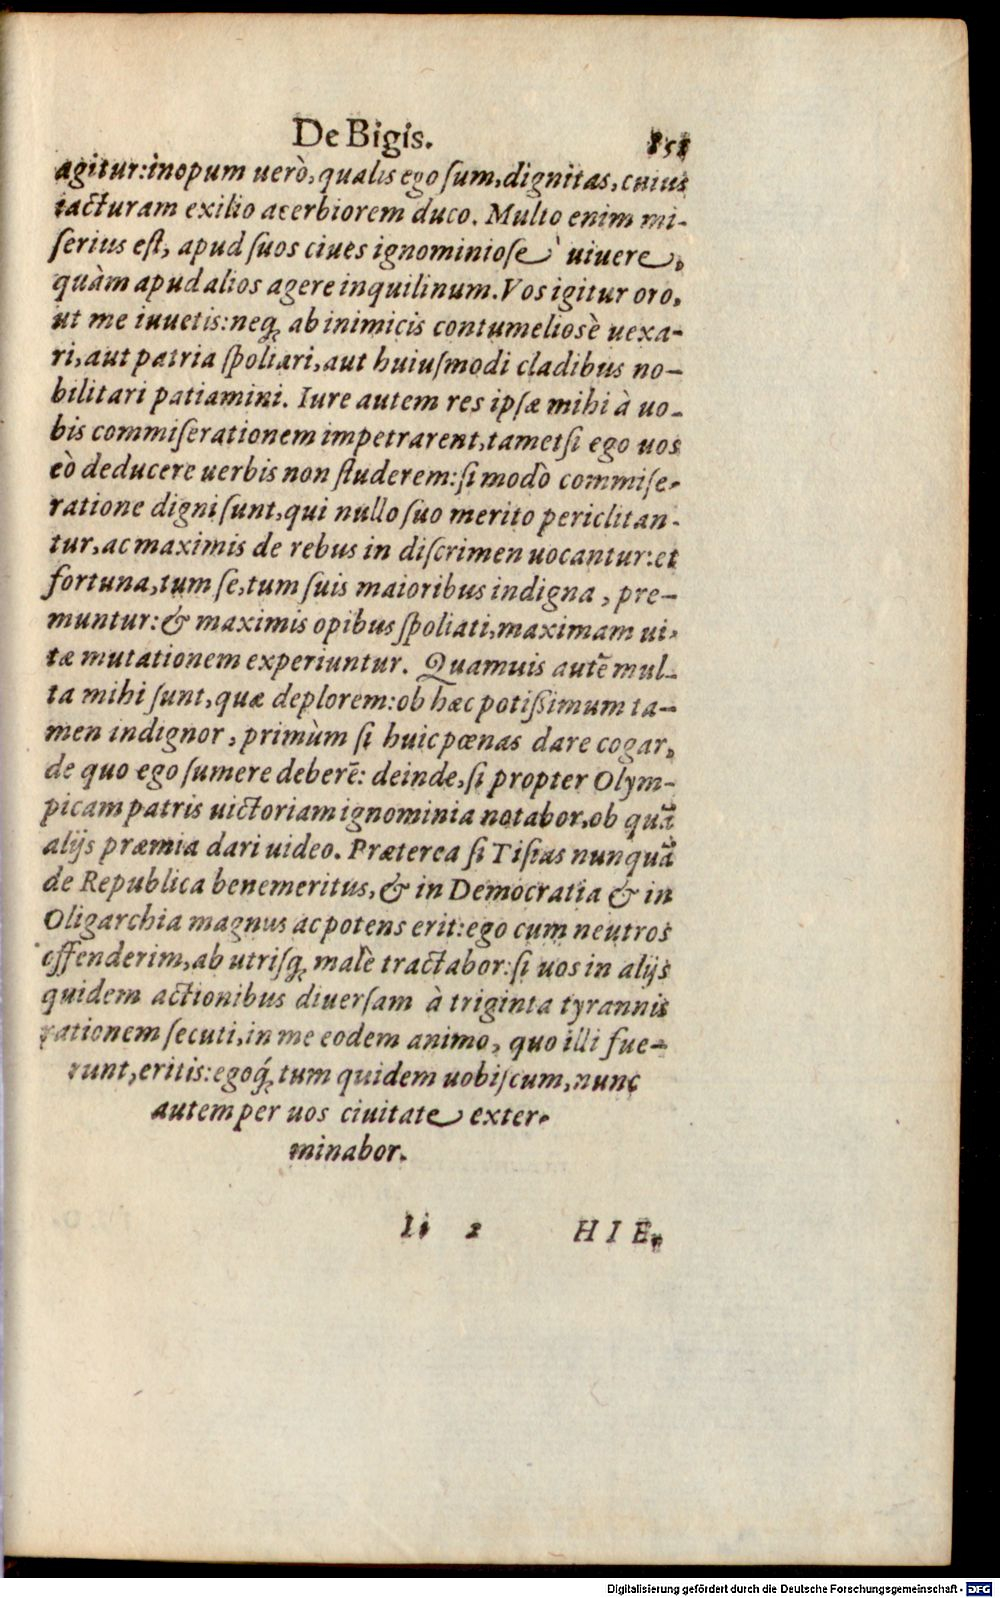 De Bigis. 251
agitur: inopum uerò, qualis ego sum, dignitas, cuius
iacturam exilio acerbiorem duco. Multo enim mi-
serius est, apud suos ciues ignominiosè uiuere,
quàm apud alios agere inquilinum. Vos igitur oro,
ut me iuuetis: neq; ab inimicis contumeliosè uexa-
ri, aut patria spoliari, aut huiusmodi cladibus no-
bilitari patiamini. Iure autem res ipsæ mihi à uo-
bis commiserationem impetrarent, tametsi ego uos
eò deducere uerbis non studerem: si modò commise-
ratione digni sunt, qui nullo suo merito periclitan-
tur, ac maximis de rebus in discrimen uocantur: et
fortuna, tum se, tum suis maioribus indigna, pre-
muntur: & maximis opibus spoliati, maximam ui-
tæ mutationem experiuntur. Quamuis autẽ mul-
ta mihi sunt, quæ deplorem: ob hæc potissimum ta-
men indignor, primùm si huic pœnas dare cogar,
de quo ego sumere deberẽ: deinde, si propter Olym-
picam patris uictoriam ignominia notabor, ob quã
alijs præmia dari uideo. Præterea si Tisias nunquã
de Republica benemeritus, & in Democratia & in
Oligarchia magnus ac potens erit: ego cum neutros
offenderim, ab utrisq; malè tractabor: si uos in alijs
quidem actionibus diuersam à triginta tyrannis
rationem secuti, in me eodem animo, quo illi fue-
runt, eritis: egoq́; tum quidem uobiscum, nunc
autem per uos ciuitate exter-
minabor.
Ii 2 HIE.
Digitalisierung gefördert durch die Deutsche Forschungsgemeinschaft - DFG